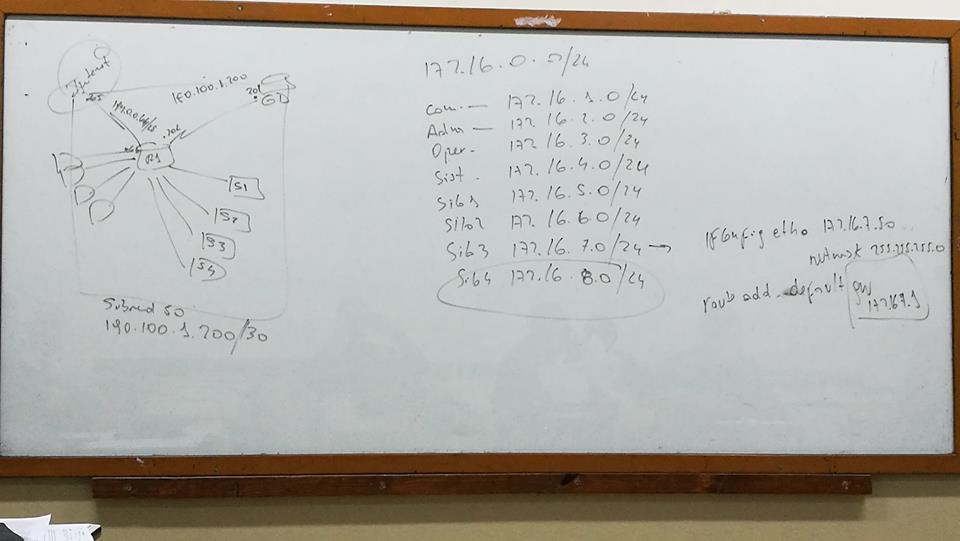 Internet
190.100.1.200
.201
G2
.202
R1
S1
S2
S3
S4
Subred 50
190.100.1.200/30
172.16.0.0/24
Com. — 172.16.1.0/24
Adm — 172.16.2.0/24
Oper. 172.16.3.0/24
Sist. 172.16.4.0/24
Sib1 172.16.5.0/24
Sib2 172.16.6.0/24
Sib3 172.16.7.0/24 →
Sib4 172.16.8.0/24
ifconfig eth0 172.16.7.50
netmask 255.255.255.0
route add default gw
172.16.7.1